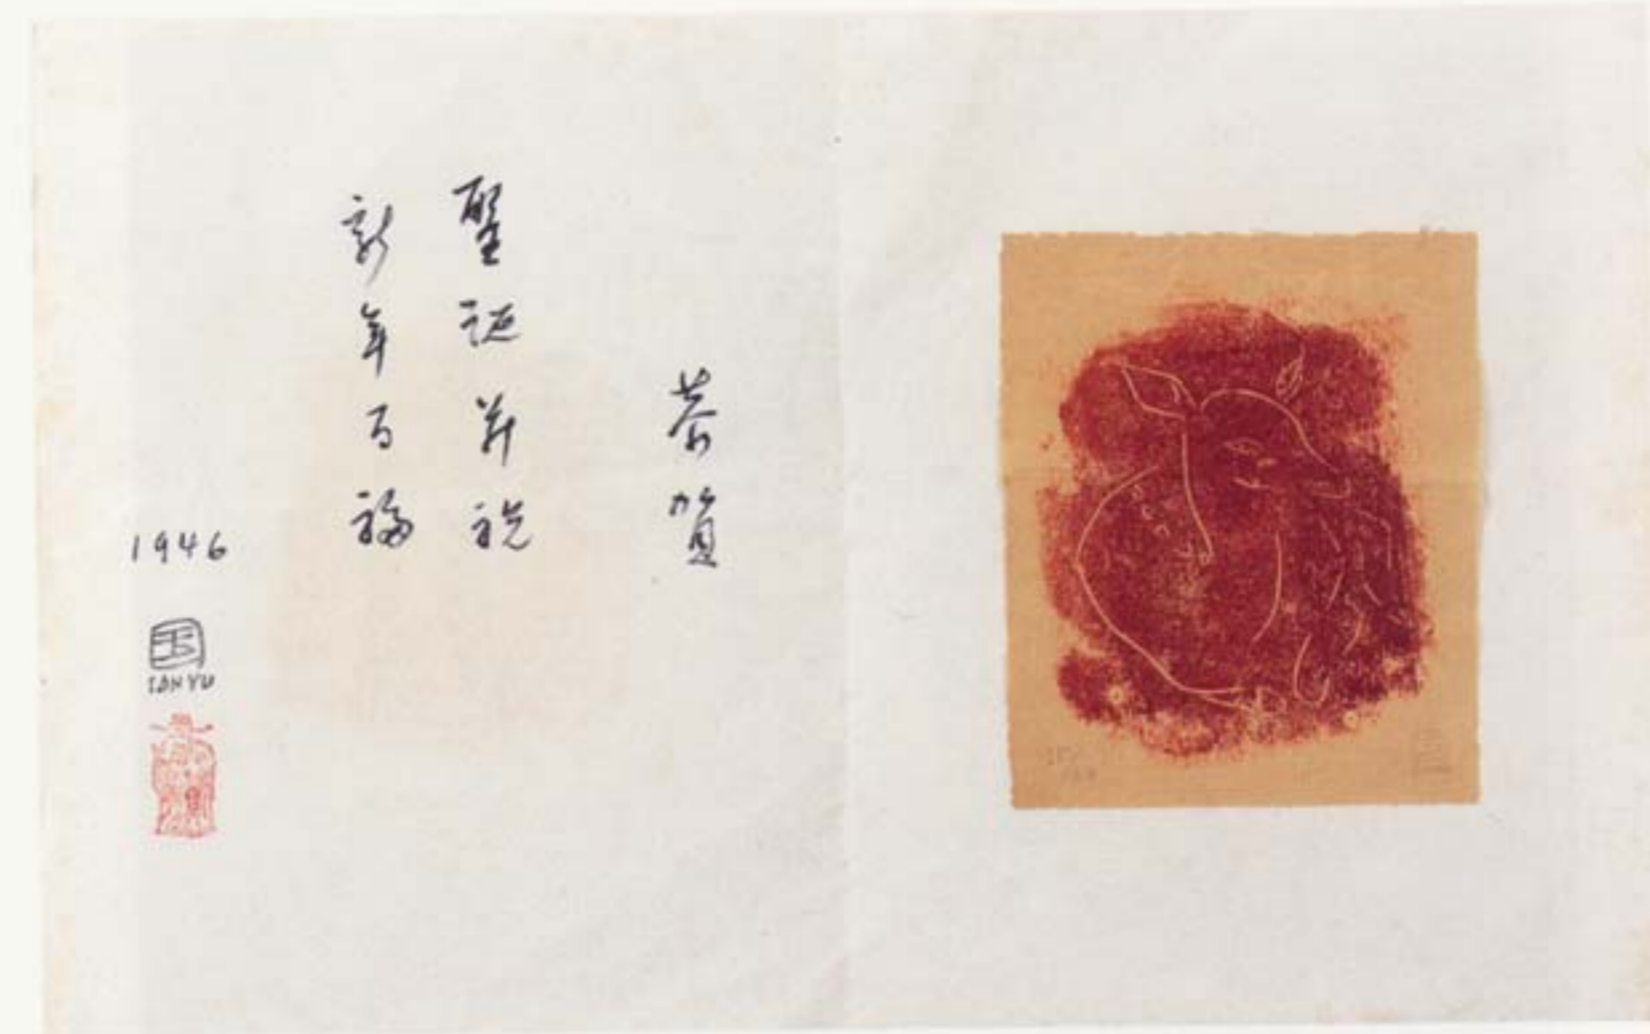 恭賀
聖诞並祝
新年百福
1946
玉
SANYU